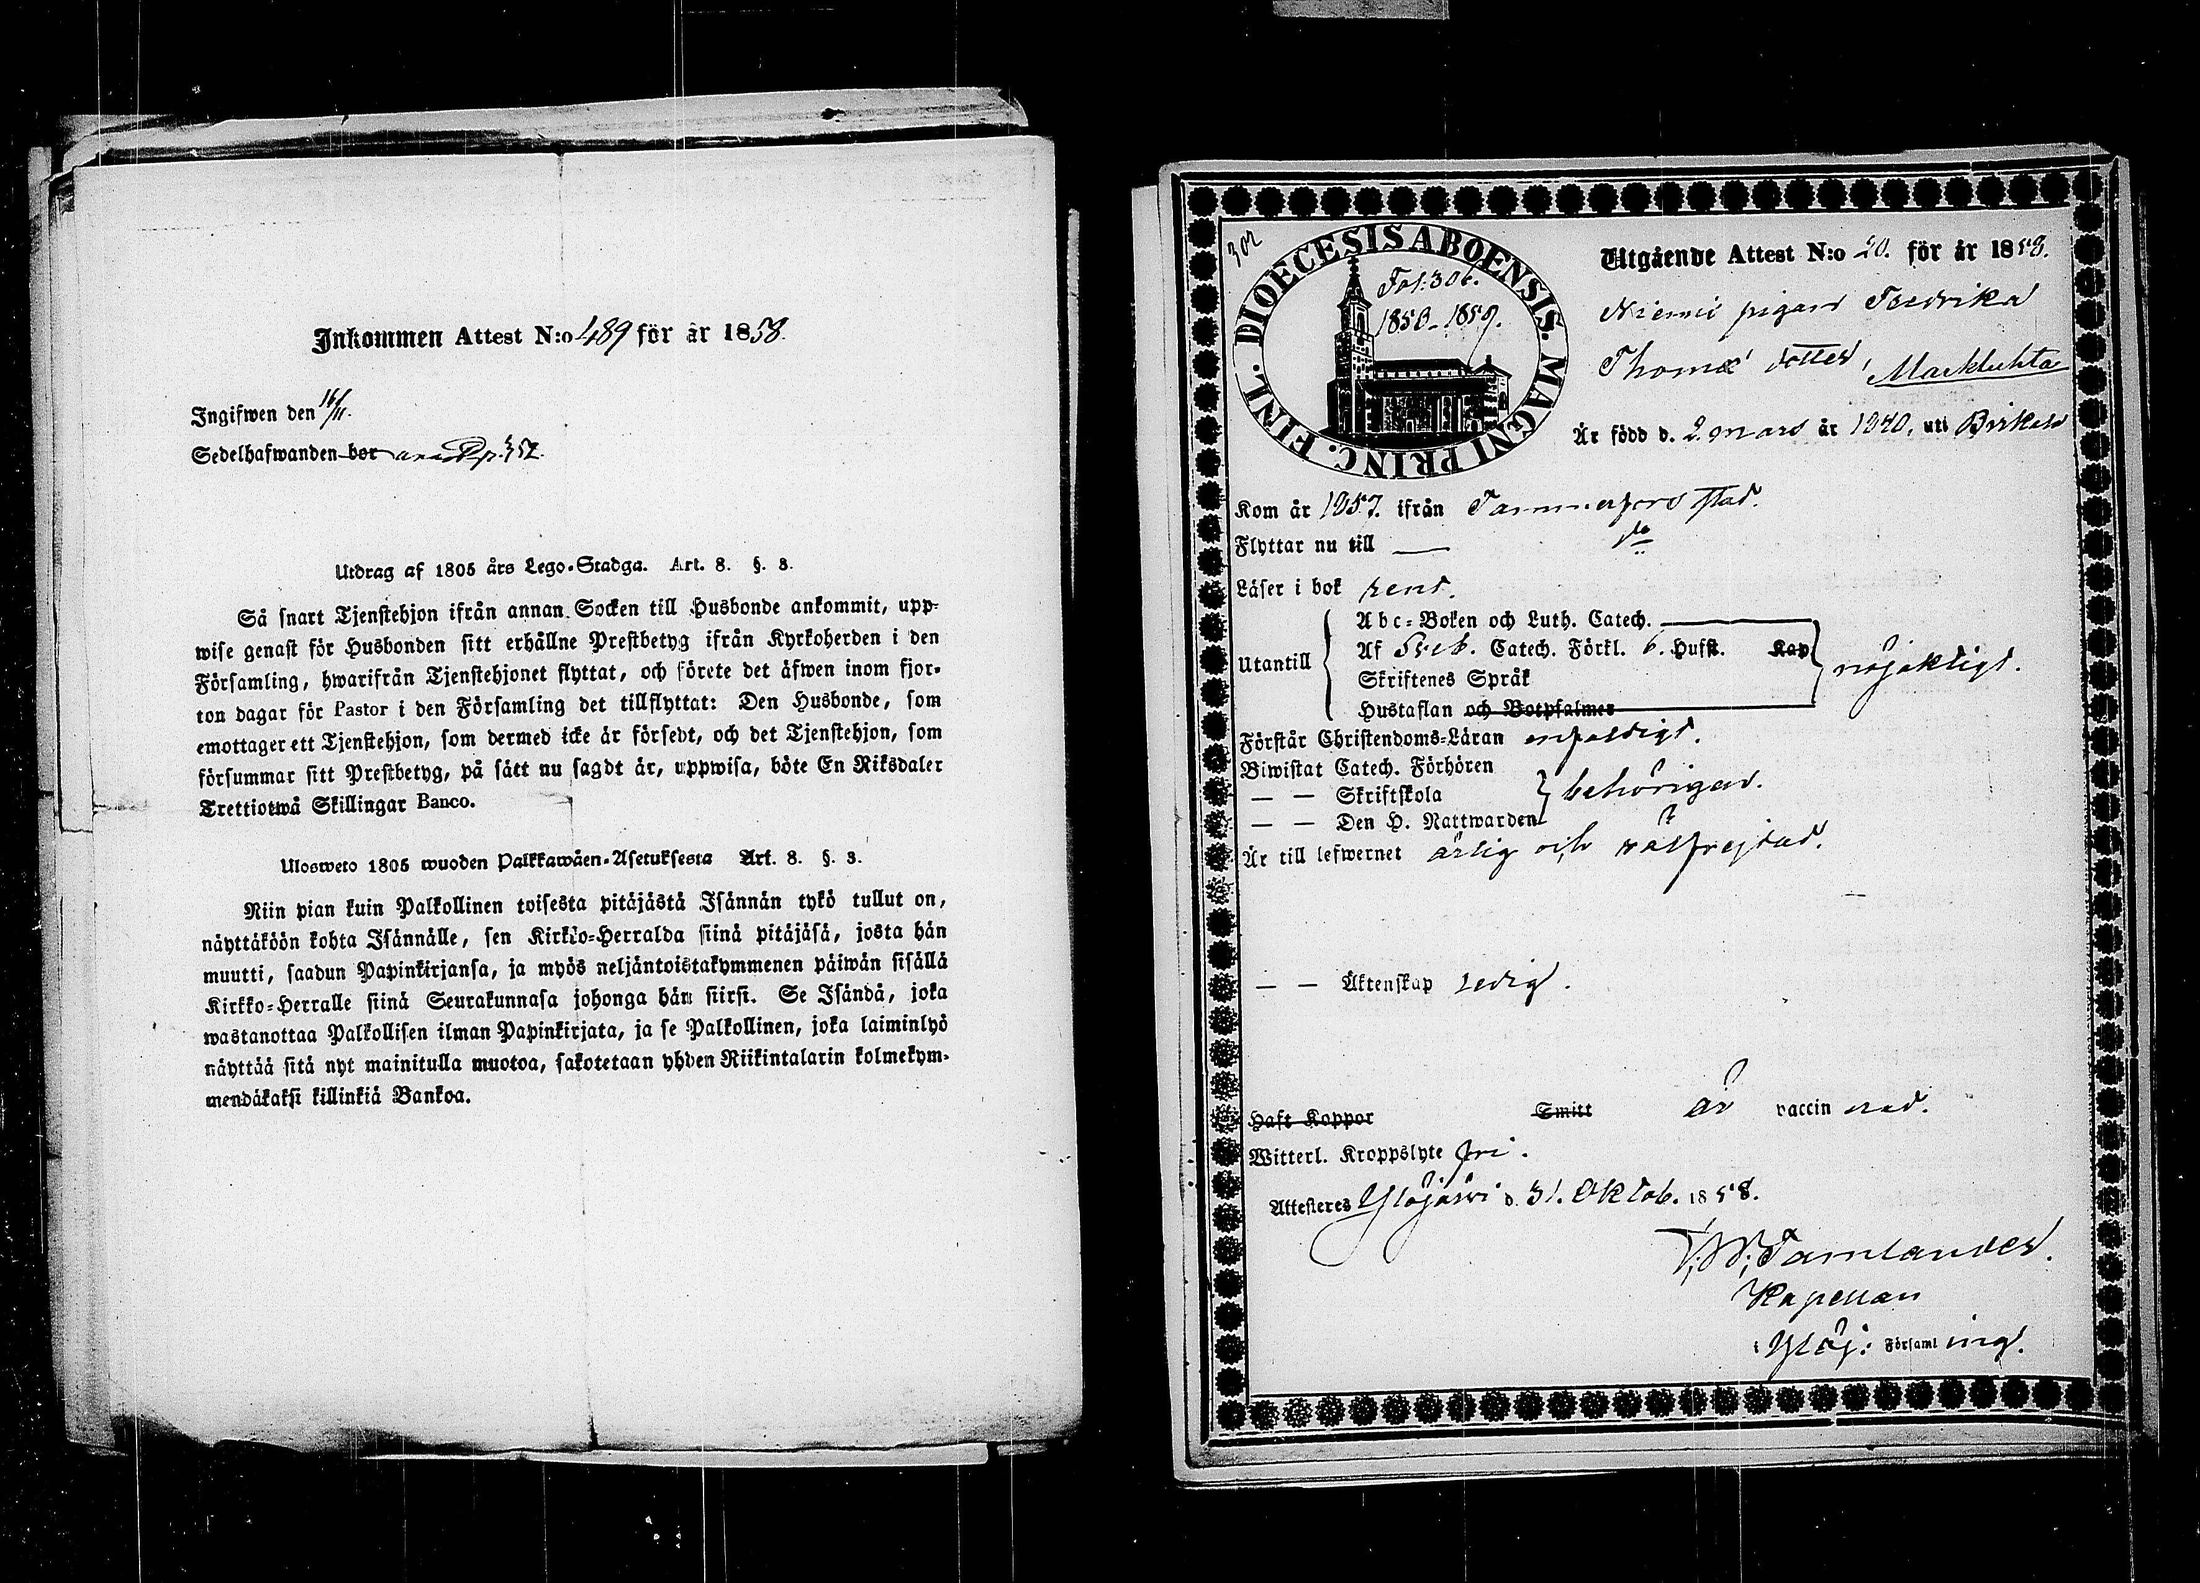 Inkommen Attest N:o 489 för år 1858.
Ingifwen den 16/11.
Sedelhafwanden bor
Utdrag af 1805 års Lego-Stadga. Art. 8. §. 3.
Så snart Tjenstehjon ifrån annan Socken till Husbonde ankommit, upp-
wise genast för Husbonden sitt erhållne Prestbetyg ifrån Kyrkoherden i den
Församling, hwarifrån Tjenstehjonet flyttat, och förete det äfwen inom fjor-
ton dagar för Pastor i den Församling det tillflyttat: Den Husbonde, som
emottager ett Tjenstehjon, som dermed icke är försedt, och det Tjenstehjon, som
försummar sitt Prestbetyg, på sätt nu sagdt är, uppwisa, böte En Riksdaler
Trettiotwå Skillingar Banco.
Ulosweto 1805 wuoden Palkkawäen-Asetuksesta Art. 8. §. 3.
Niin pian kuin Palkollinen toisesta pitäjästä Isännän tykö tullut on,
näyttäköön kohta Isännälle, sen Kirkko-Herralda siinä pitäjäsä, josta hän
muutti, saadun Papinkirjansa, ja myös neljäntoistakymmenen päiwän sisällä
Kirkko-Herralle siinä Seurakunnasa johonga hän siirsi. Se Isändä, joka
wastanottaa Palkollisen ilman Papinkirjata, ja se Palkollinen, joka laiminlyö
näyttää sitä nyt mainitulla muotoa, sakotetaan yhden Riikintalarin kolmekym-
mendäkaksi killinkiä Bankoa.
302
DIOECESIS ABOENSIS. MAGNI PRINC. FINL.
Fol: 306.
1850-1859.
Utgående Attest N:o 50. för år 1858.
Niemi pigan Fredrika
Thomæ dotter, Markluhta
Är född d. 2 mars år 1840, uti Birkala
Kom år 1857. ifrån Tammerfors stad.
Flyttar nu till — do
Läser i bok rent.
Abc-Boken och Luth. Catech.
Utantill Af Sveb. Catech. Förkl. 6. Hufst. Kap nöjaktigt.
Skriftenes Språk
Hustaflan och Botpsalmer
Förstår Christendoms-Läran enfaldigt.
Biwistat Catech. Förhören
— — Skriftskola behörigen.
— — Den H. Nattwarden
Är till lefwernet ärlig och välfrejdad.
— — Äktenskap ledig.
Haft Koppor Smitt är vaccinerad.
Witterl. Kroppslyte fri.
Attesteres Ylöjärvi d. 31. Oktob. 1858.
Tamlander.
Kapellan
i Ylöj: Församling.